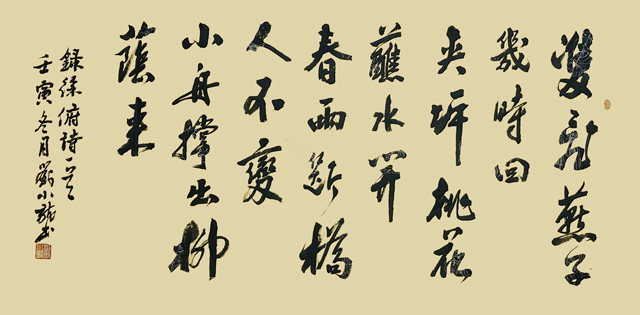 雙飛燕子
幾時回
夾岸桃花
蘸水開
春雨斷橋
人不變
小舟撐出柳
蔭来
録徐俯詩一首
壬寅冬月劉小龍书